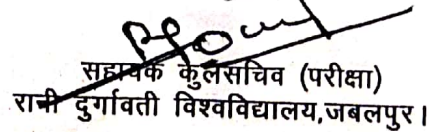 सहायक कुलसचिव (परीक्षा)
रानी दुर्गावती विश्वविद्यालय,जबलपुर।